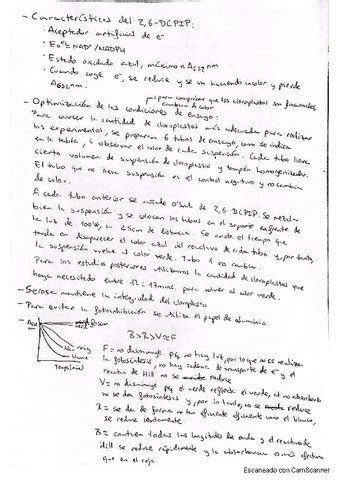 - Características del 2,6-DCPIP:
· Aceptador artificial de e-
· E0'≥ NAD+/NADPH
· Estado oxidado azul, máximo A652nm
· Cuando coge e-, se reduce y se va haciendo incolor y pierde
A652nm.
para comprobar que los cloroplastos son funcionales,
cambian de color
- Optimización de las condiciones de ensayo:
Para conocer la cantidad de cloroplastos más adecuada para realizar
los experimentos, se preparan 6 tubos de ensayo, como se indica
en la tabla, y observar el color de cada suspensión. Cada tubo lleva
cierto volumen de suspensión de cloroplastos y tampón homogenizador.
El tubo que no lleva suspensión es el control negativo y no cambia
de color.
A cada tubo anterior se añade 0'5ml de 2,6-DCPIP. Se mezcla
bien la suspensión y se colocan los tubos en el soporte enfrente de
la luz de 100W, a 25cm de distancia. Se anota el tiempo que
tarda en desaparecer el color azul del reactivo de cada tubo y, por tanto,
la suspensión vuelve al color verde. Tubo 1 no cambia.
Para los estudios posteriores utilizamos la cantidad de cloroplastos que
haya necesitado entre 12 y 17 mins. para volver al color verde.
- Serosa mantiene la integridad del cloroplasto
- Para evitar la fotoinhibición se utiliza el papel de aluminio
B>R>V≈F
F = no disminuye pq no hay luz, por lo que no se realiza
la fotosíntesis, no hay cadena de transporte de e- y el
reactivo de Hill no se reduce
V = no disminuye pq el verde refleja el verde, el no absorberlo
no se da fotosíntesis y, por lo tanto, no se reduce
R = se da de forma no tan eficiente como el blanco,
se reduce lentamente.
B = contiene todas las longitudes de onda y el reactivo de
Hill se reduce rápidamente y la absorbancia o más
que en el rojo.
Tiempo (min)
Escaneado con CamScanner